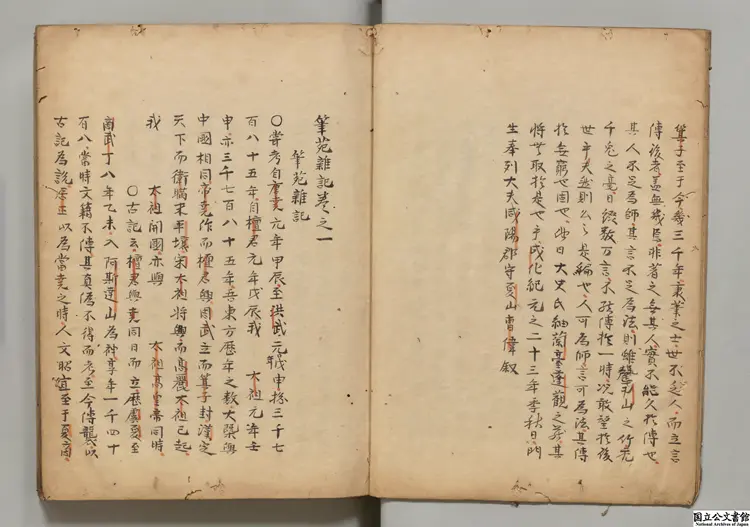 箕子至于今幾三千年秉業之士世不乏人而立言
傳後者蓋無幾焉非著之無其人實不能久於傳也
其人不足為師其言不足為法則雖罄南山之竹禿
千兎之毫日綴數万言不能傳於一時况敢望於後
世乎夫然則公之是編也人可為師言可為法其傳
於無窮也固也他日大史氏紬蘭臺蓬觀之蔵其
將必取於是也乎成化紀元之二十三年季秋日門
生奉列大夫咸陽郡守夏山曺偉叙
筆苑雜記卷之一
筆苑雜記
〇嘗考自唐堯元年甲辰至洪武元年戊申揔三千七
百八十五年自檀君元年戊辰我 太祖元年壬
申亦三千七百八十五年吾東方歷年之數大槩與
中國相同帝堯作而檀君興周武立而箕子封漢定
天下而衛瞞来平壤宋太祖將興而高麗太祖已起
我 太祖開國亦與 太祖高皇帝同時
〇古記云檀君與堯同日而立歷虞夏至
商武丁八年乙未入阿斯達山為神享年一千四十
百八當時文籍不傳其真偽不得而考至今傳襲以
古記為說居正以為當堯之時人文昭宣至于夏商